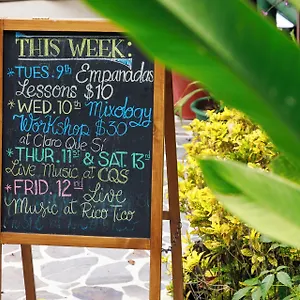 THIS WEEK:
*TUES. 9th Empanadas
Lessons $10
*WED. 10th Mixology
Workshop $30
at Claro Que Sí
*THUR. 11th & SAT. 13th
Live Music at CQS
*FRID. 12th Live
Music at Rico Tico